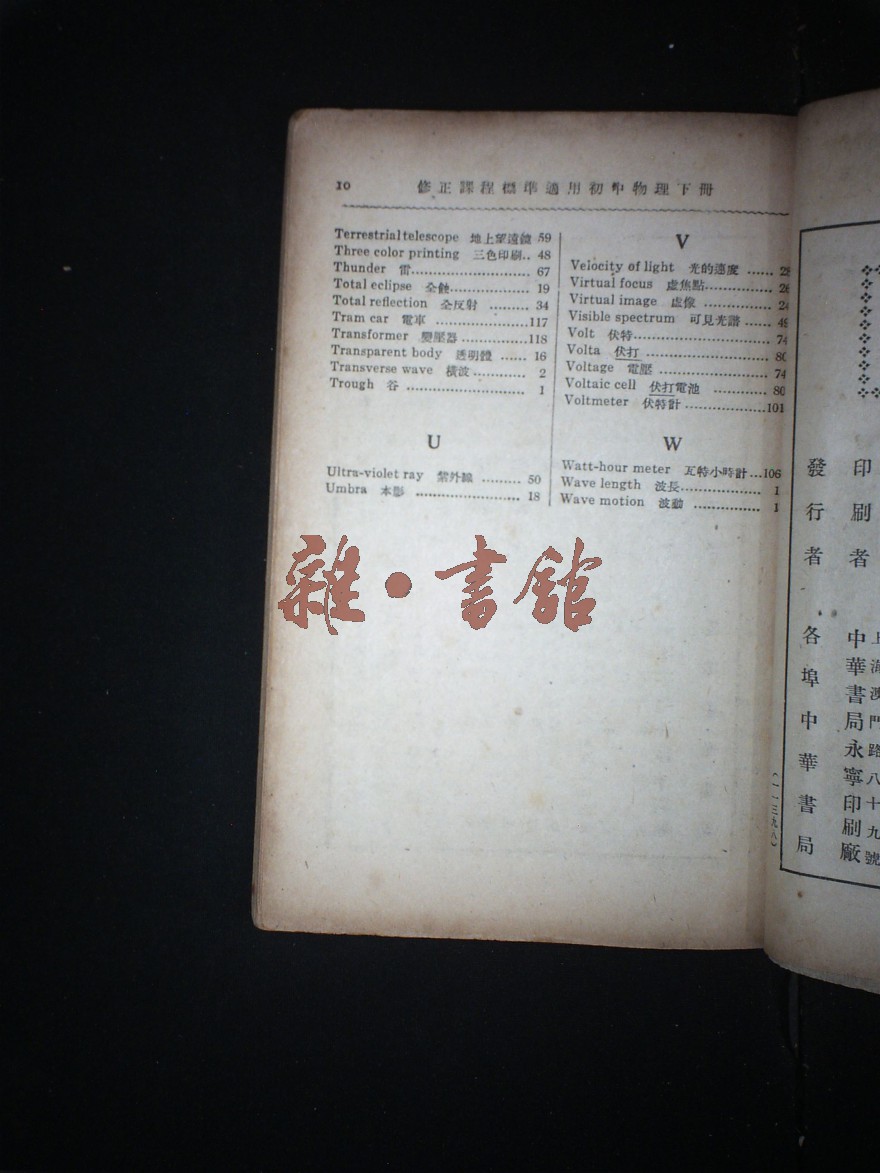 10 修正課程標準適用初中物理下冊
Terrestrial telescope 地上望遠鏡 59
Three color printing 三色印刷.. 48
Thunder 雷........................ 67
Total eclipse 全蝕................. 19
Total reflection 全反射 ........ 34
Tram car 電車 ..................117
Transformer 變壓器.............118
Transparent body 透明體 ...... 16
Transverse wave 橫波........... 2
Trough 谷 ........................ 1
U
Ultra-violet ray 紫外線 ......... 50
Umbra 本影 ..................... 18
V
Velocity of light 光的速度 ...... 28
Virtual focus 虛焦點............. 26
Virtual image 虛像 .............. 24
Visible spectrum 可見光譜 ...... 49
Volt 伏特........................... 74
Volta 伏打 ........................ 80
Voltage 電壓 ..................... 74
Voltaic cell 伏打電池 ............ 80
Voltmeter 伏特計................101
W
Watt-hour meter 瓦特小時計...106
Wave length 波長................ 1
Wave motion 波動 .............. 1
雜·書館
印刷者
上海澳門路八十九號
中華書局永寧印刷廠
發行者
各埠中華書局
(一一三九八)